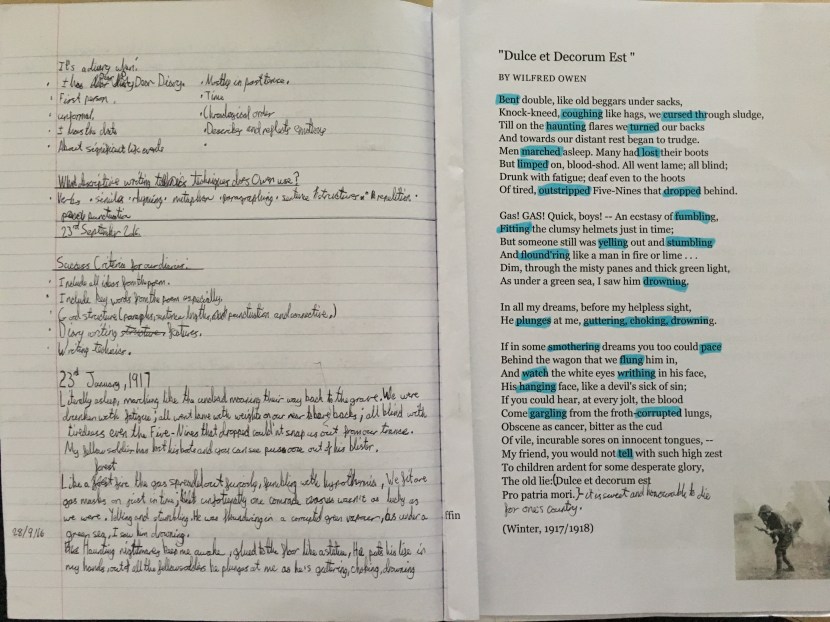 It's a diary when:
· I has Dear Diary. · Mostly in past tense.
· First person. · Time
· informal. · Chronological order
· I has the date · Describes and reflects emotions
· About significant life events ·
What descriptive writing techniques does Owen use?
· Verbs · similes · rhyming · metaphor · paragraphing · sentence structures · repetition
punctuation
23rd September
Success Criteria for our diaries:
· Include all ideas from the poem.
· Include key words from the poem especially.
· Good structure (paragraphs, sentence lengths, punctuation and connective.)
· Diary writing structure features.
· Writing
23rd January, 1917
Literally asleep, marching like the undead moaning their way back to the grave. We were
drunken with fatigue; all went lame with weights on our near backs; all blind with
tiredness even the Five-Nines that dropped couldn't snap us out from our trance.
My fellow soldier has lost his boots and you can see puss ooze out of his blister.
forest
Like a fire the gas spread out furiously, fumbling with hypothermia, We fit are
gas masks on just in time, but unfortunatly one comrade wasn't as lucky as
we were. Yelling and stumbling, He was floundering in a corrupted green vapour, as under a
green sea, I saw him drowning.
28/9/16
Haunting nightmares keep me awake, glued to the floor like a statue, He puts his life in
my hands, out of all the fellow soldiers he plunges at me as he's guttering, choking, drowning
ffin
"Dulce et Decorum Est "
BY WILFRED OWEN
Bent double, like old beggars under sacks,
Knock-kneed, coughing like hags, we cursed through sludge,
Till on the haunting flares we turned our backs
And towards our distant rest began to trudge.
Men marched asleep. Many had lost their boots
But limped on, blood-shod. All went lame; all blind;
Drunk with fatigue; deaf even to the hoots
Of tired, outstripped Five-Nines that dropped behind.
Gas! GAS! Quick, boys! -- An ecstasy of fumbling,
Fitting the clumsy helmets just in time;
But someone still was yelling out and stumbling
And flound'ring like a man in fire or lime . . .
Dim, through the misty panes and thick green light,
As under a green sea, I saw him drowning.
In all my dreams, before my helpless sight,
He plunges at me, guttering, choking, drowning.
If in some smothering dreams you too could pace
Behind the wagon that we flung him in,
And watch the white eyes writhing in his face,
His hanging face, like a devil's sick of sin;
If you could hear, at every jolt, the blood
Come gargling from the froth-corrupted lungs,
Obscene as cancer, bitter as the cud
Of vile, incurable sores on innocent tongues, --
My friend, you would not tell with such high zest
To children ardent for some desperate glory,
The old lie:(Dulce et decorum est
Pro patria mori.} - it is sweet and honourable to die
for ones country.
(Winter, 1917/1918)